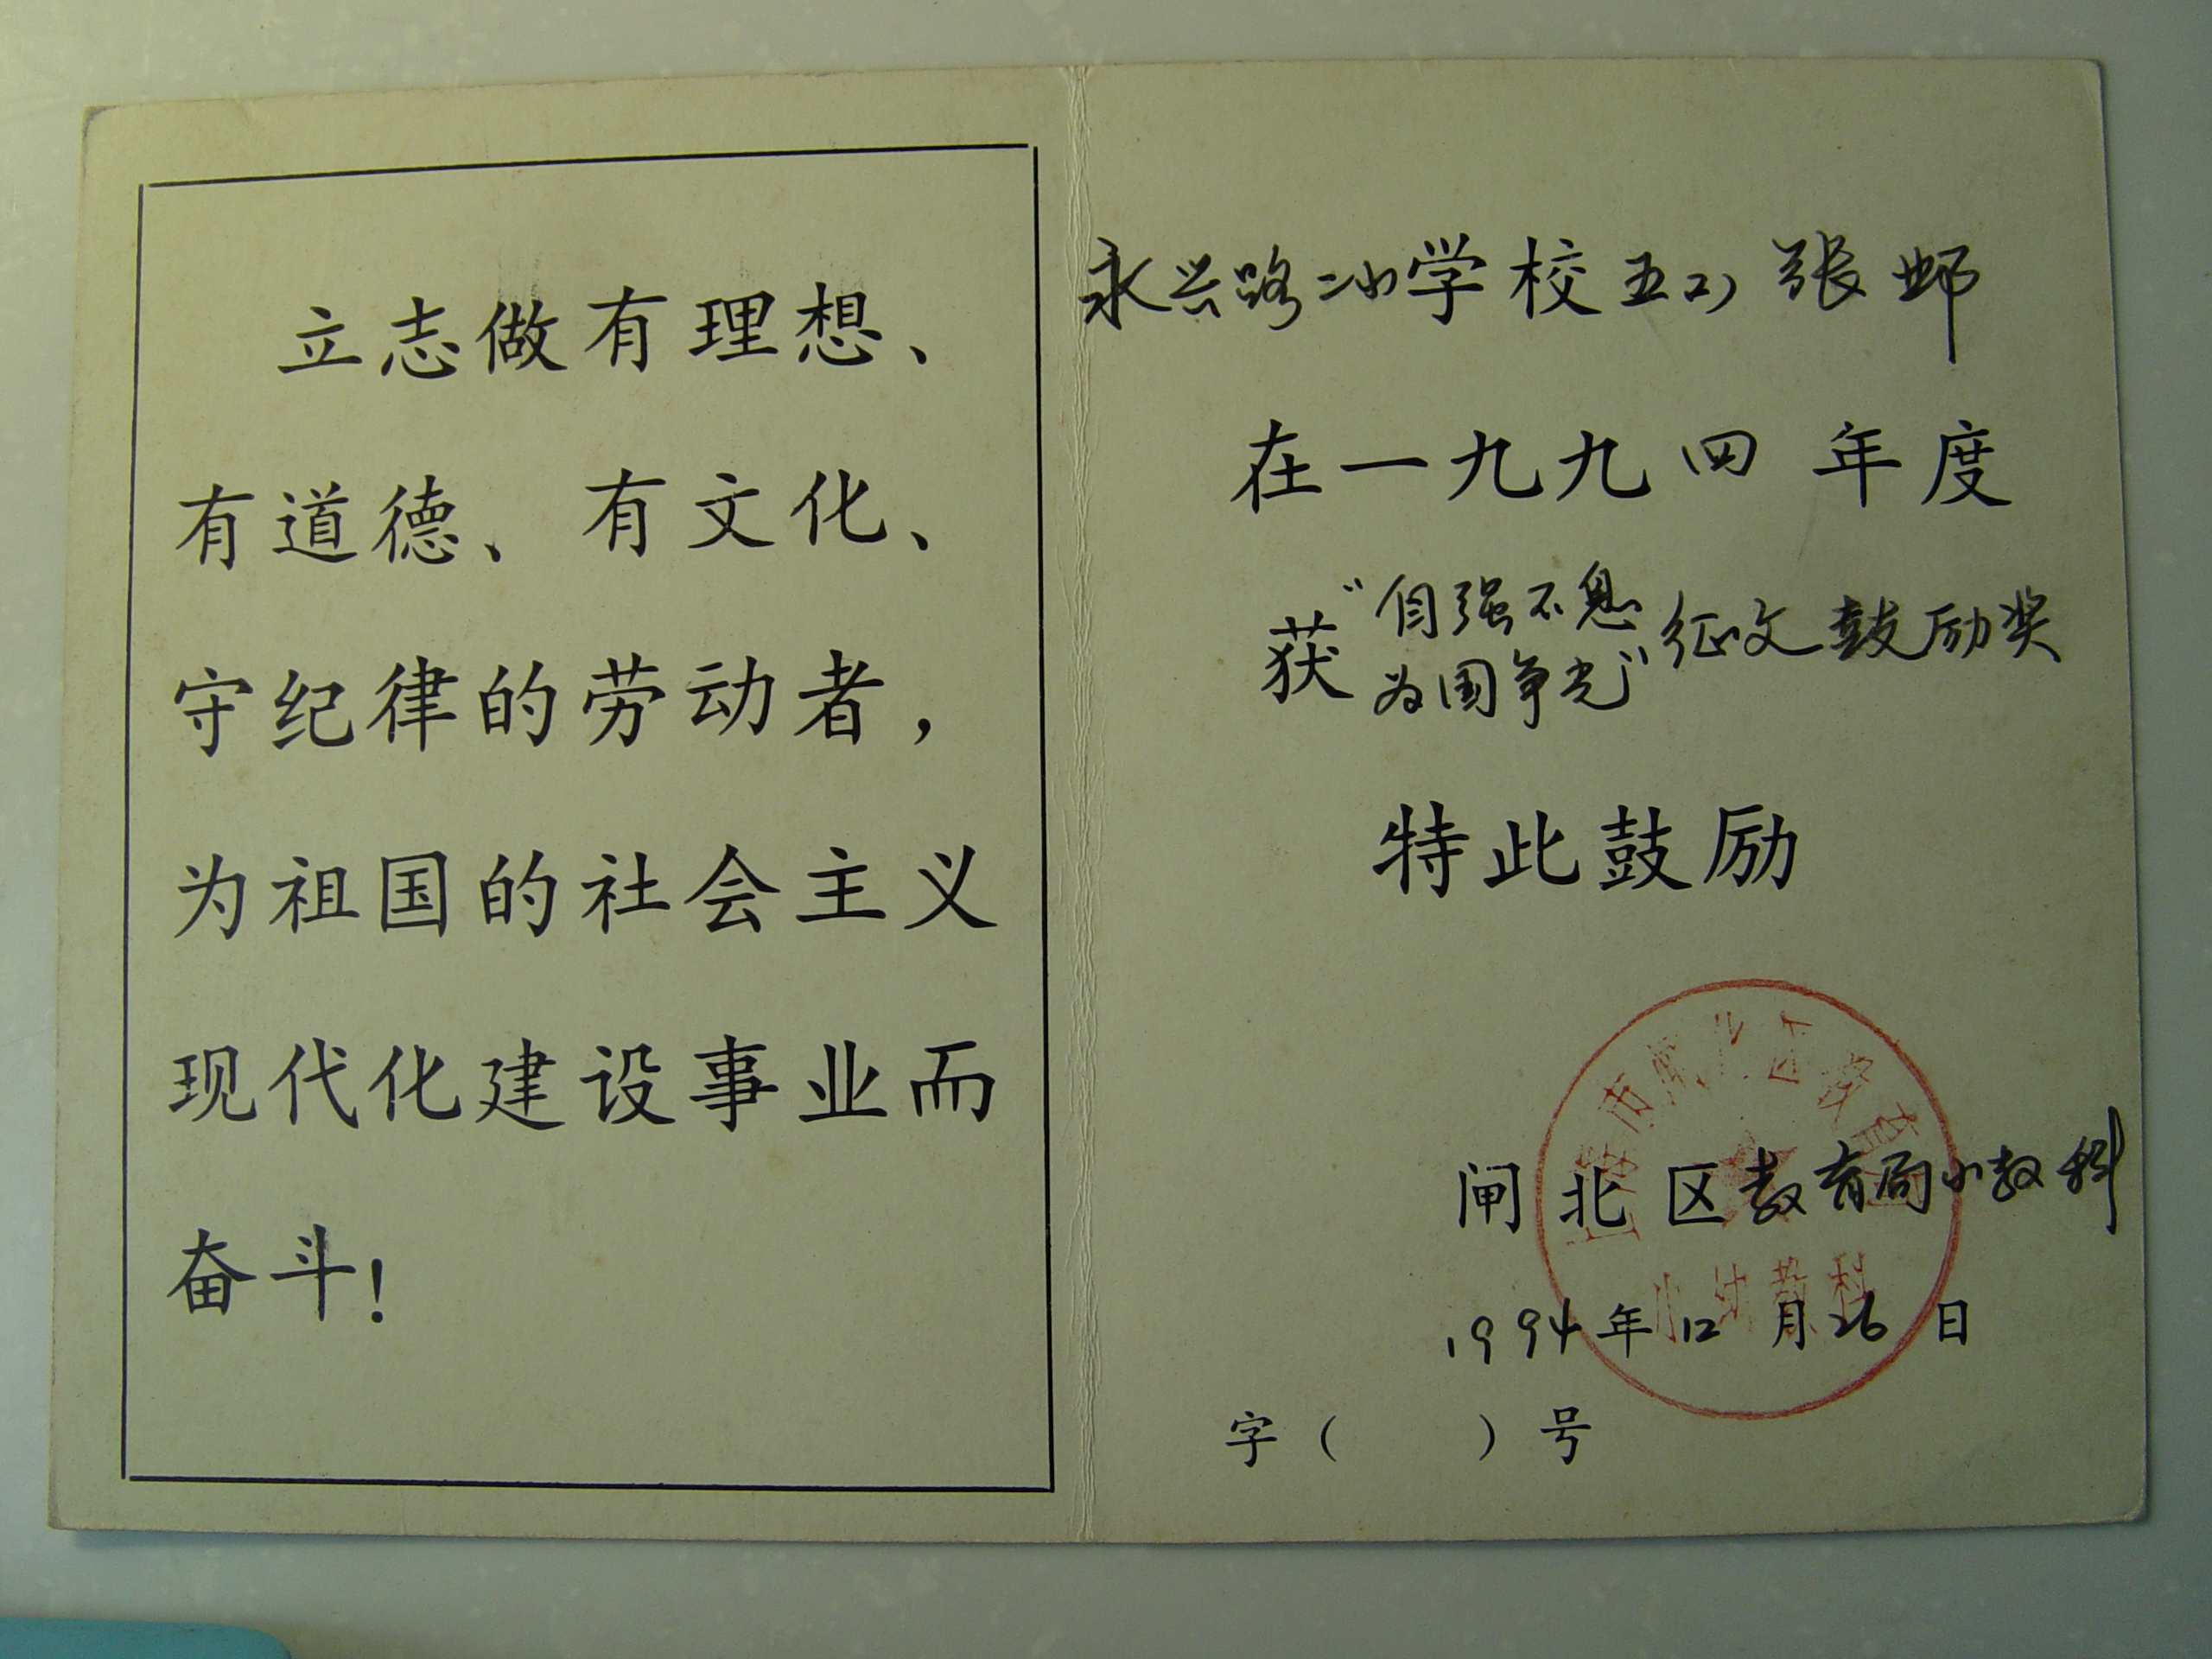 立志做有理想、
有道德、有文化、
守纪律的劳动者，
为祖国的社会主义
现代化建设事业而
奋斗！
永兴路二小学校五(2)张邺
在一九九四年度
获"自强不息
为国争光"征文鼓励奖
特此鼓励
上海市闸北区教育局
闸北区教育局小教科
小幼教科
1994年12月26日
字（ ）号